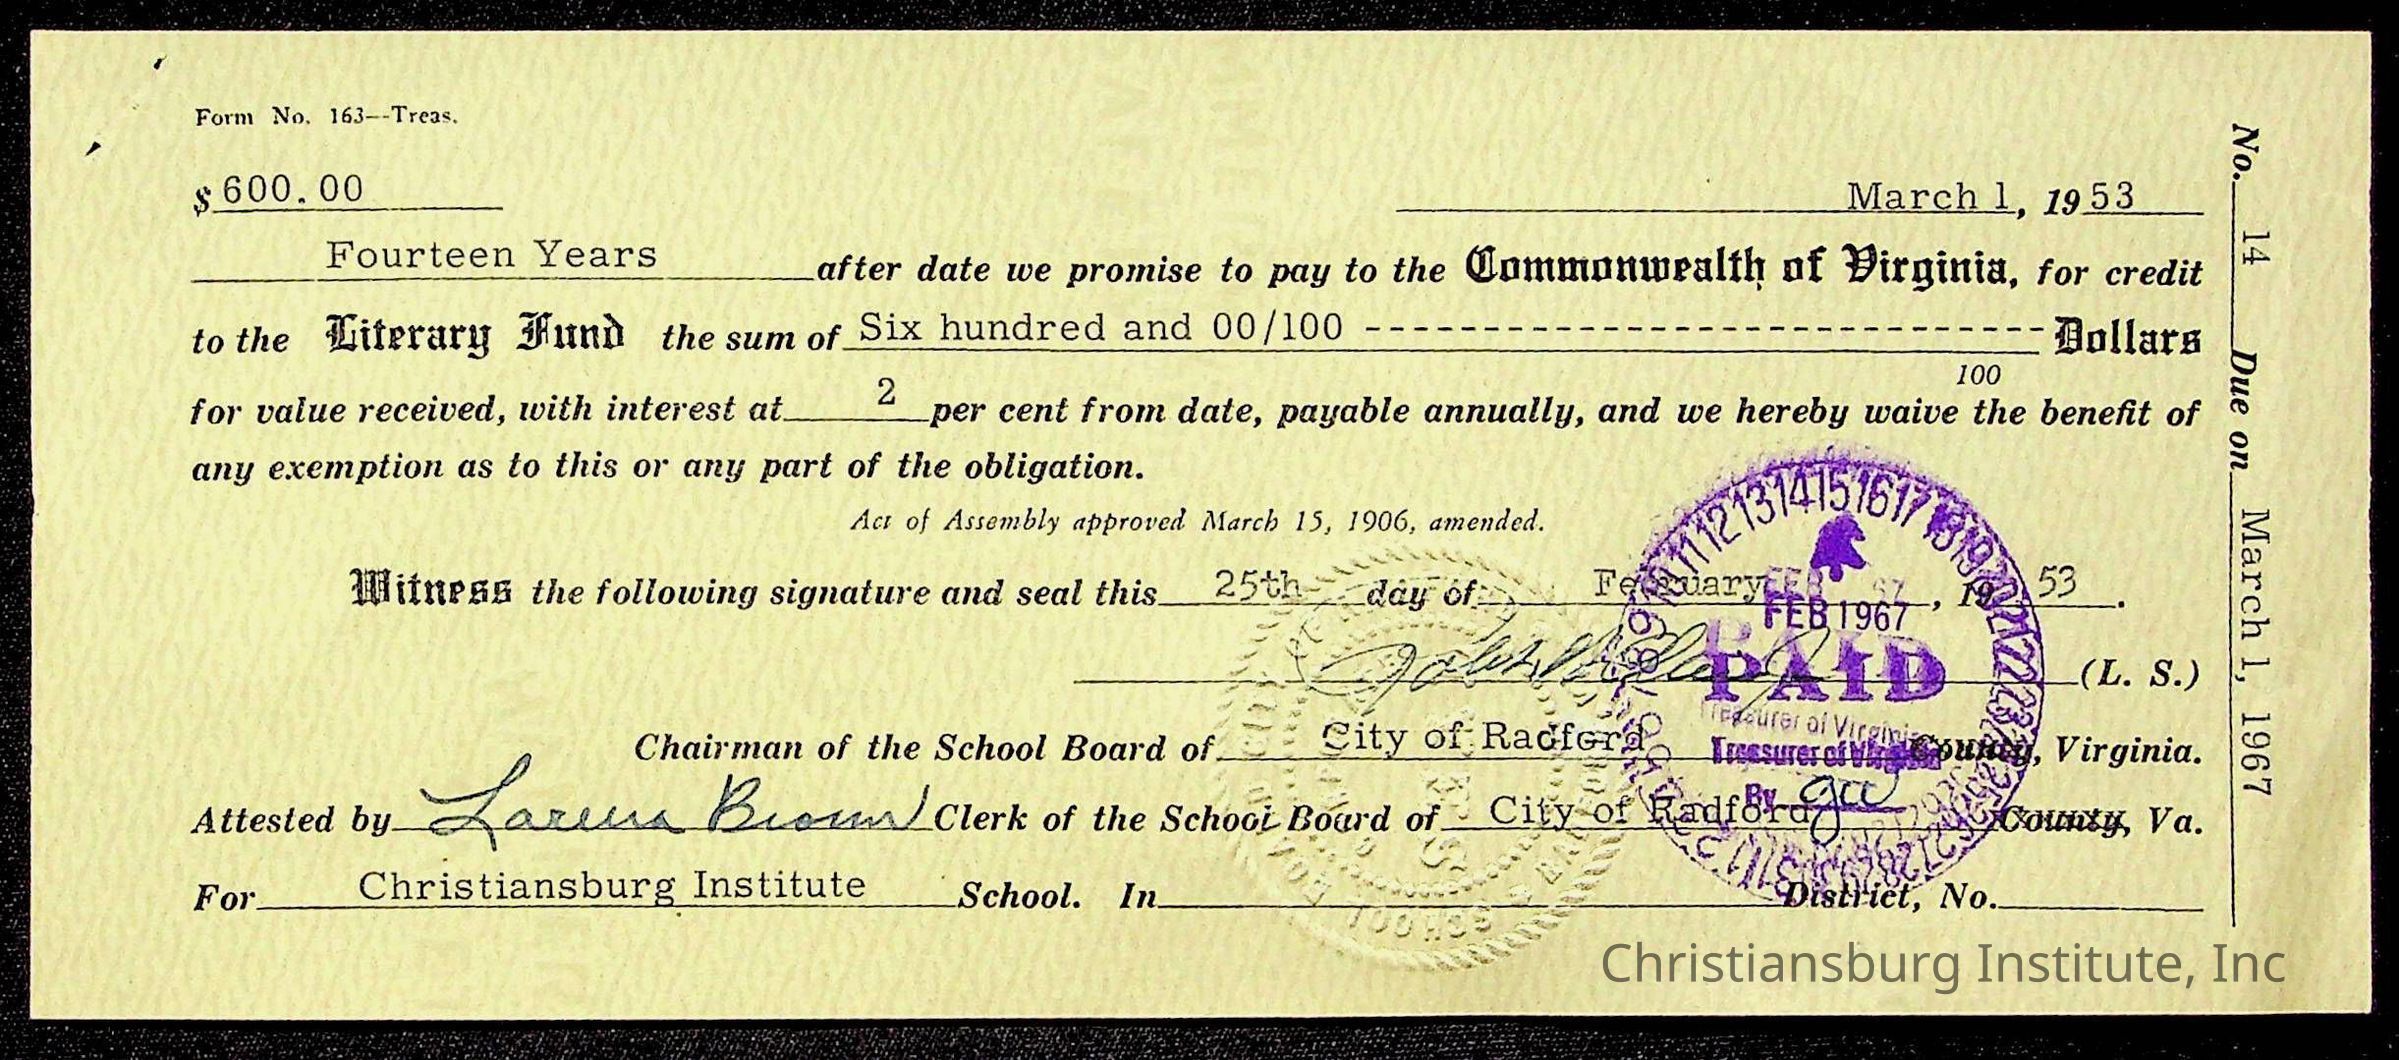 Form No. 163--Treas.
$ 600.00 March 1, 19 53
Fourteen Years after date we promise to pay to the Commonwealth of Virginia, for credit
to the Literary Fund the sum of Six hundred and 00/100 ------------------------------ Dollars
100
for value received, with interest at 2 per cent from date, payable annually, and we hereby waive the benefit of
any exemption as to this or any part of the obligation.
Act of Assembly approved March 15, 1906, amended.
Witness the following signature and seal this 25th day of February, 19 53.
(L. S.)
Chairman of the School Board of City of Radford County, Virginia.
Attested by Brown Clerk of the School Board of City of Radford County, Va.
For Christiansburg Institute School. In District, No.
No. 14 Due on March 1, 1967
FEB 1967
PAID
Treasurer of Virginia
By
Christiansburg Institute, Inc